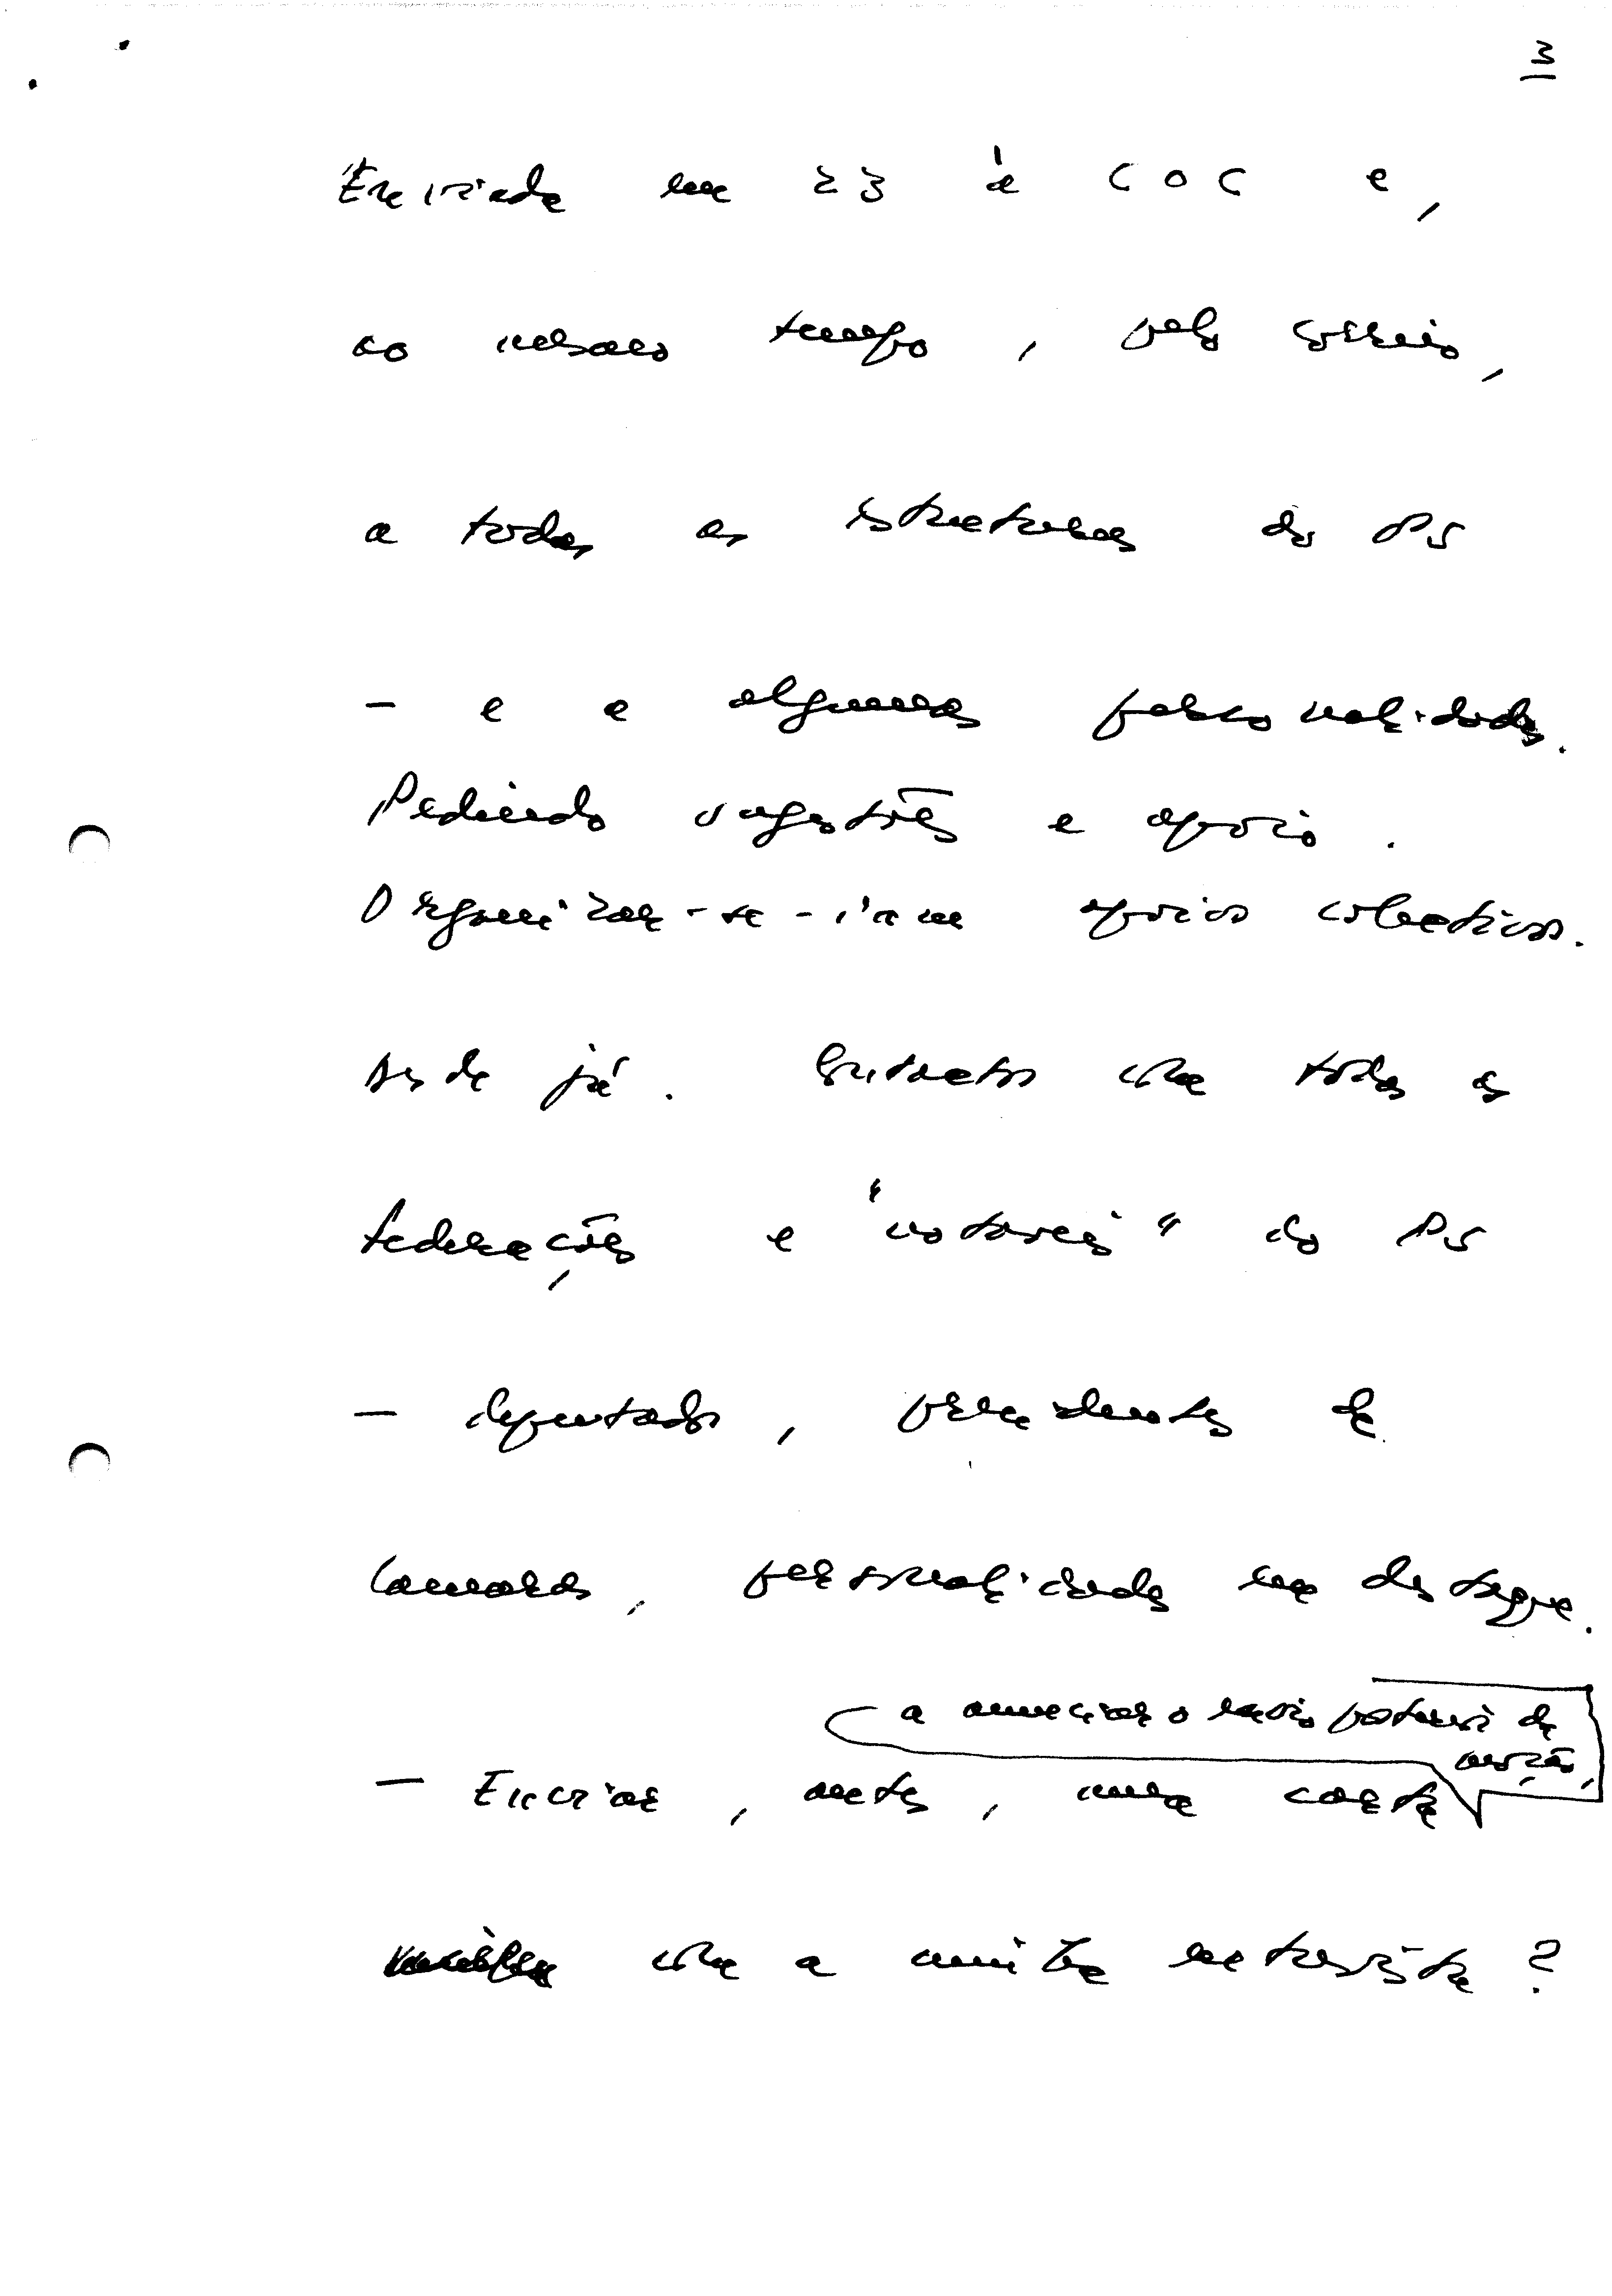 3
Enviada em 23 à COC e,
ao mesmo tempo, pelo correio,
a todas as estruturas do PS
- e a algumas personalidades.
Pedindo sugestões e apoio.
Organizar-se-iam apoios colectivos.
desde já. Contactos com todas as
federações e "notáveis" do PS
- deputados, presidentes de
Camaras, personalidades em destaque.
a anunciar o envio posterior da
moção,
- Enviar, antes, uma carta
com a minha entrevista?